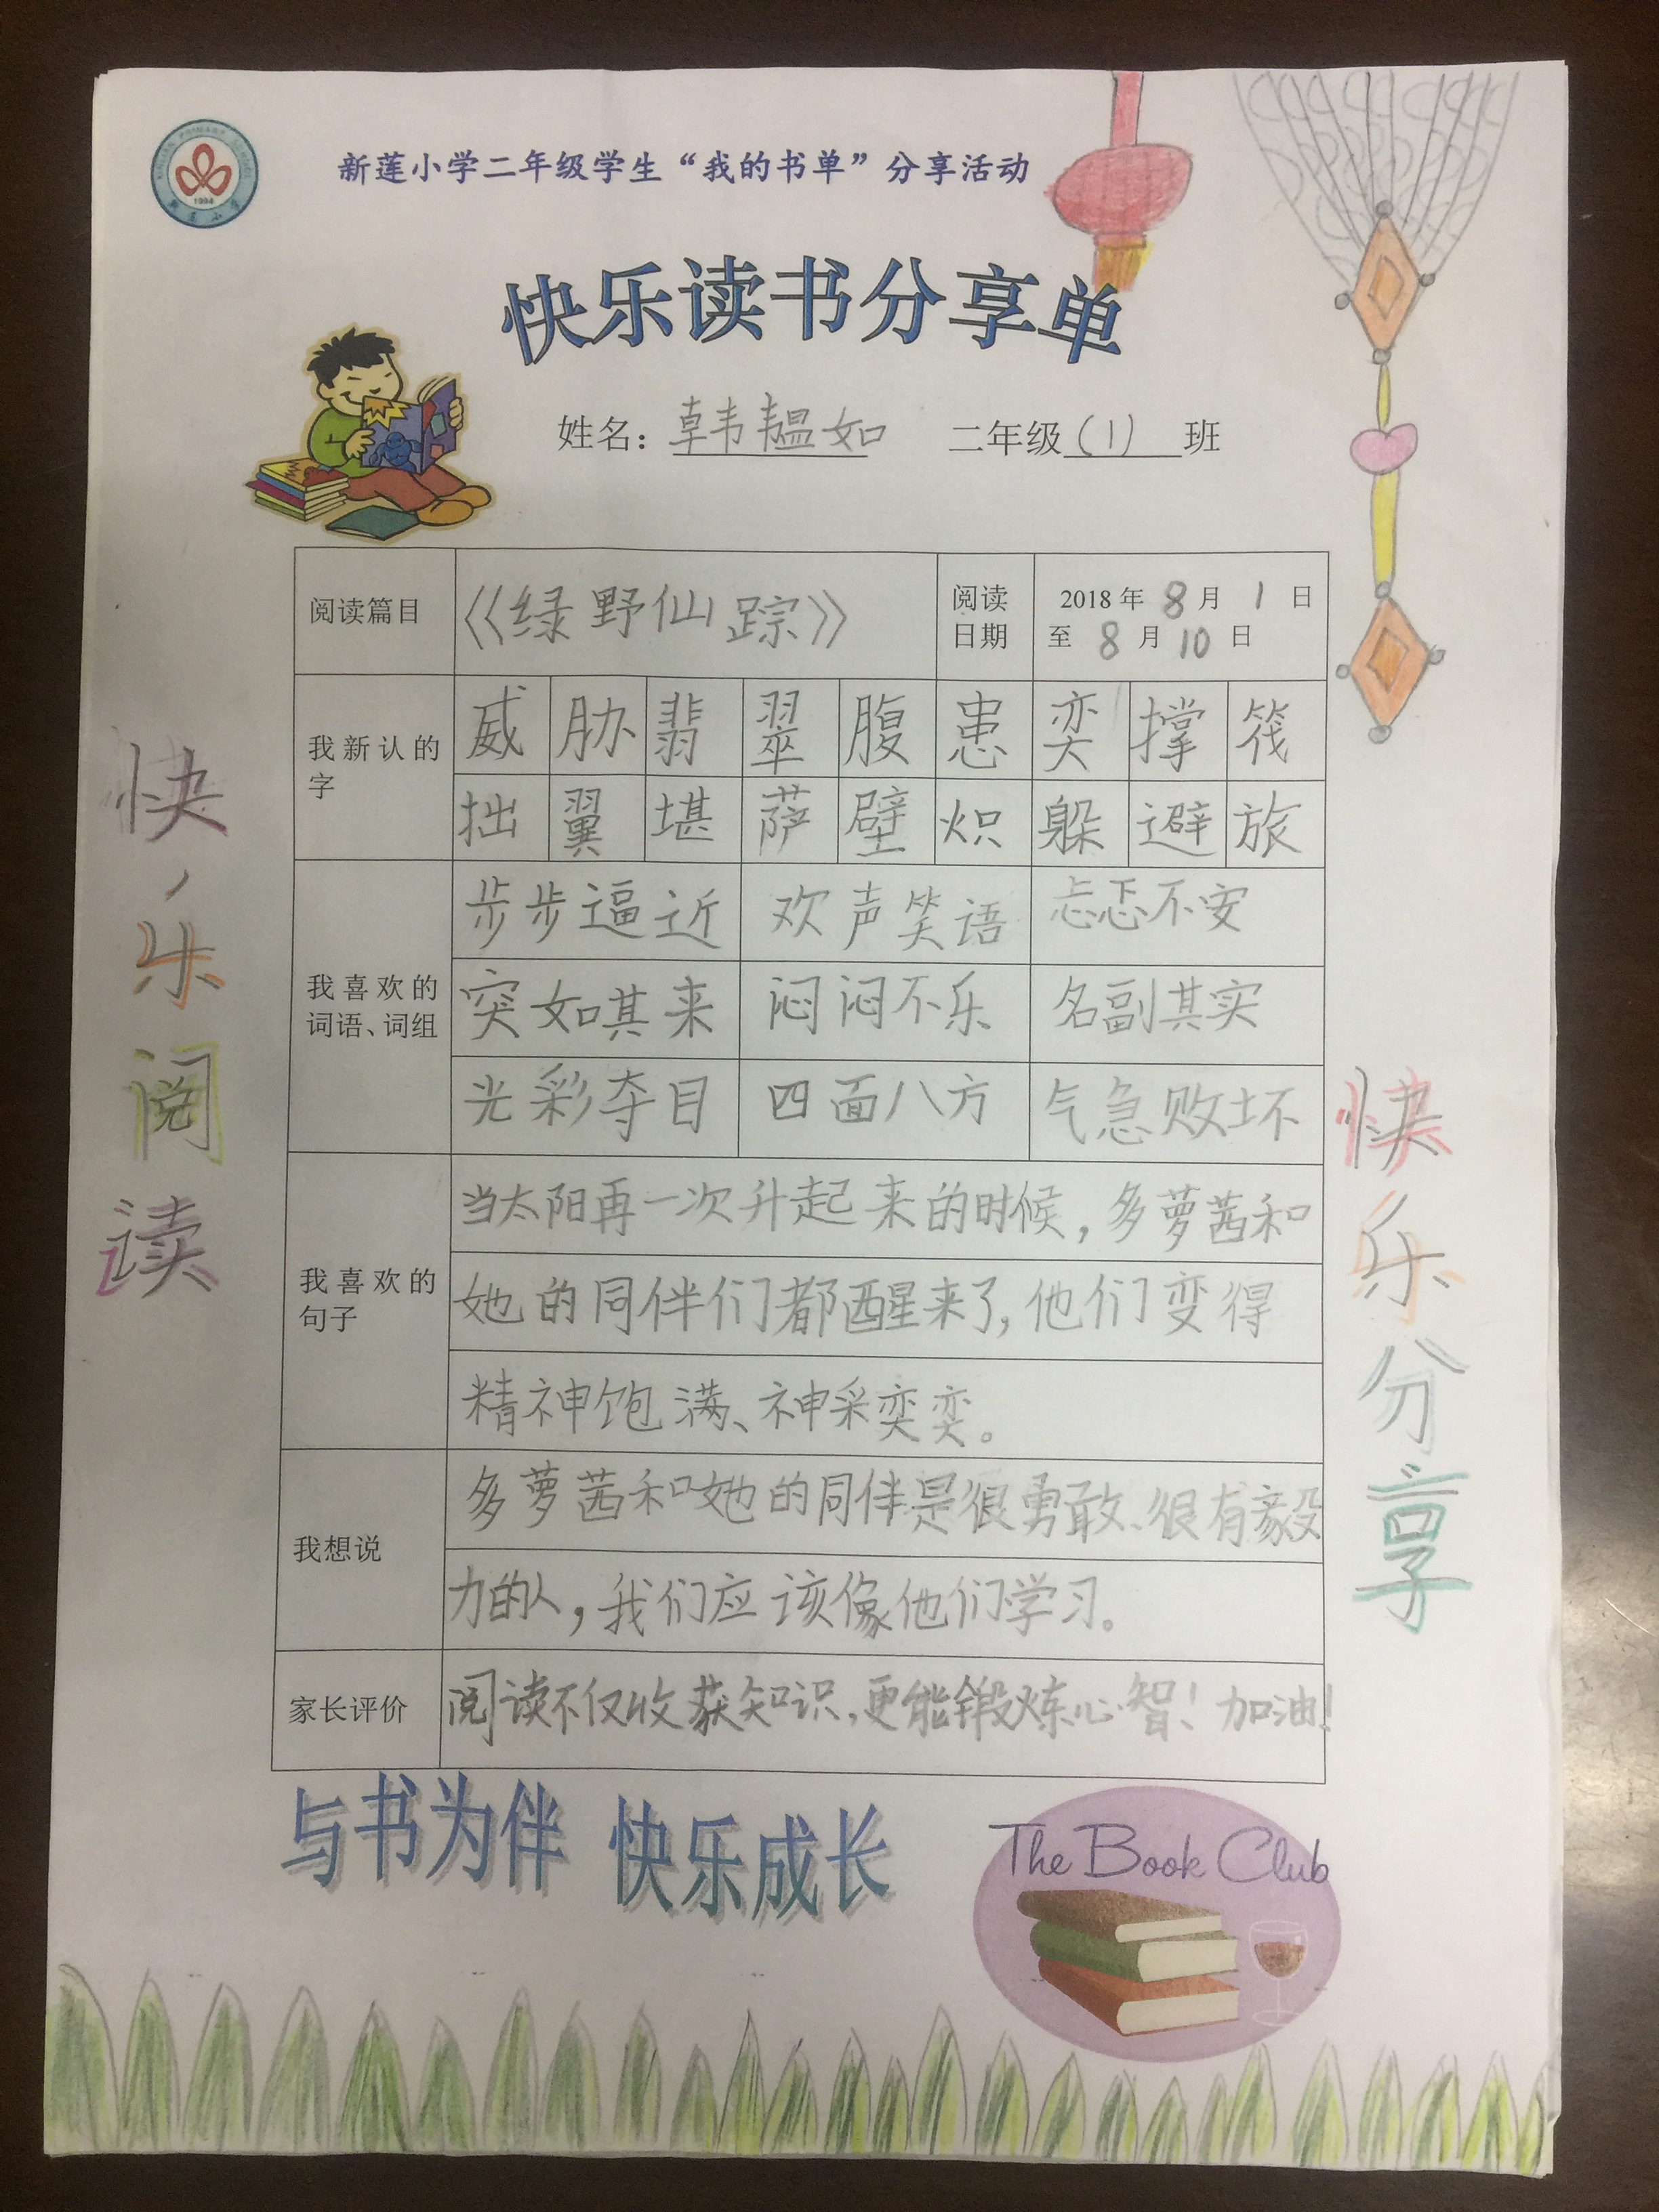 新莲小学二年级学生“我的书单”分享活动
1994
快乐读书分享单
姓名：韩韫如 二年级（1）班
阅读篇目 《绿野仙踪》 阅读日期 2018年8月1日至8月10日
我新认的字
威 胁 翡 翠 腹 患 奕 撑 筏
拙 翼 堪 萨 壁 炽 躲 避 旅
我喜欢的词语、词组
步步逼近 欢声笑语 忐忑不安
突如其来 闷闷不乐 名副其实
光彩夺目 四面八方 气急败坏
我喜欢的句子
当太阳再一次升起来的时候，多萝茜和
她的同伴们都醒来了，他们变得
精神饱满、神采奕奕。
我想说
多萝茜和她的同伴是很勇敢、很有毅
力的人，我们应该像他们学习。
家长评价
阅读不仅收获知识，更能锻炼心智！加油！
快乐阅读
快乐分享
与书为伴 快乐成长
The Book Club